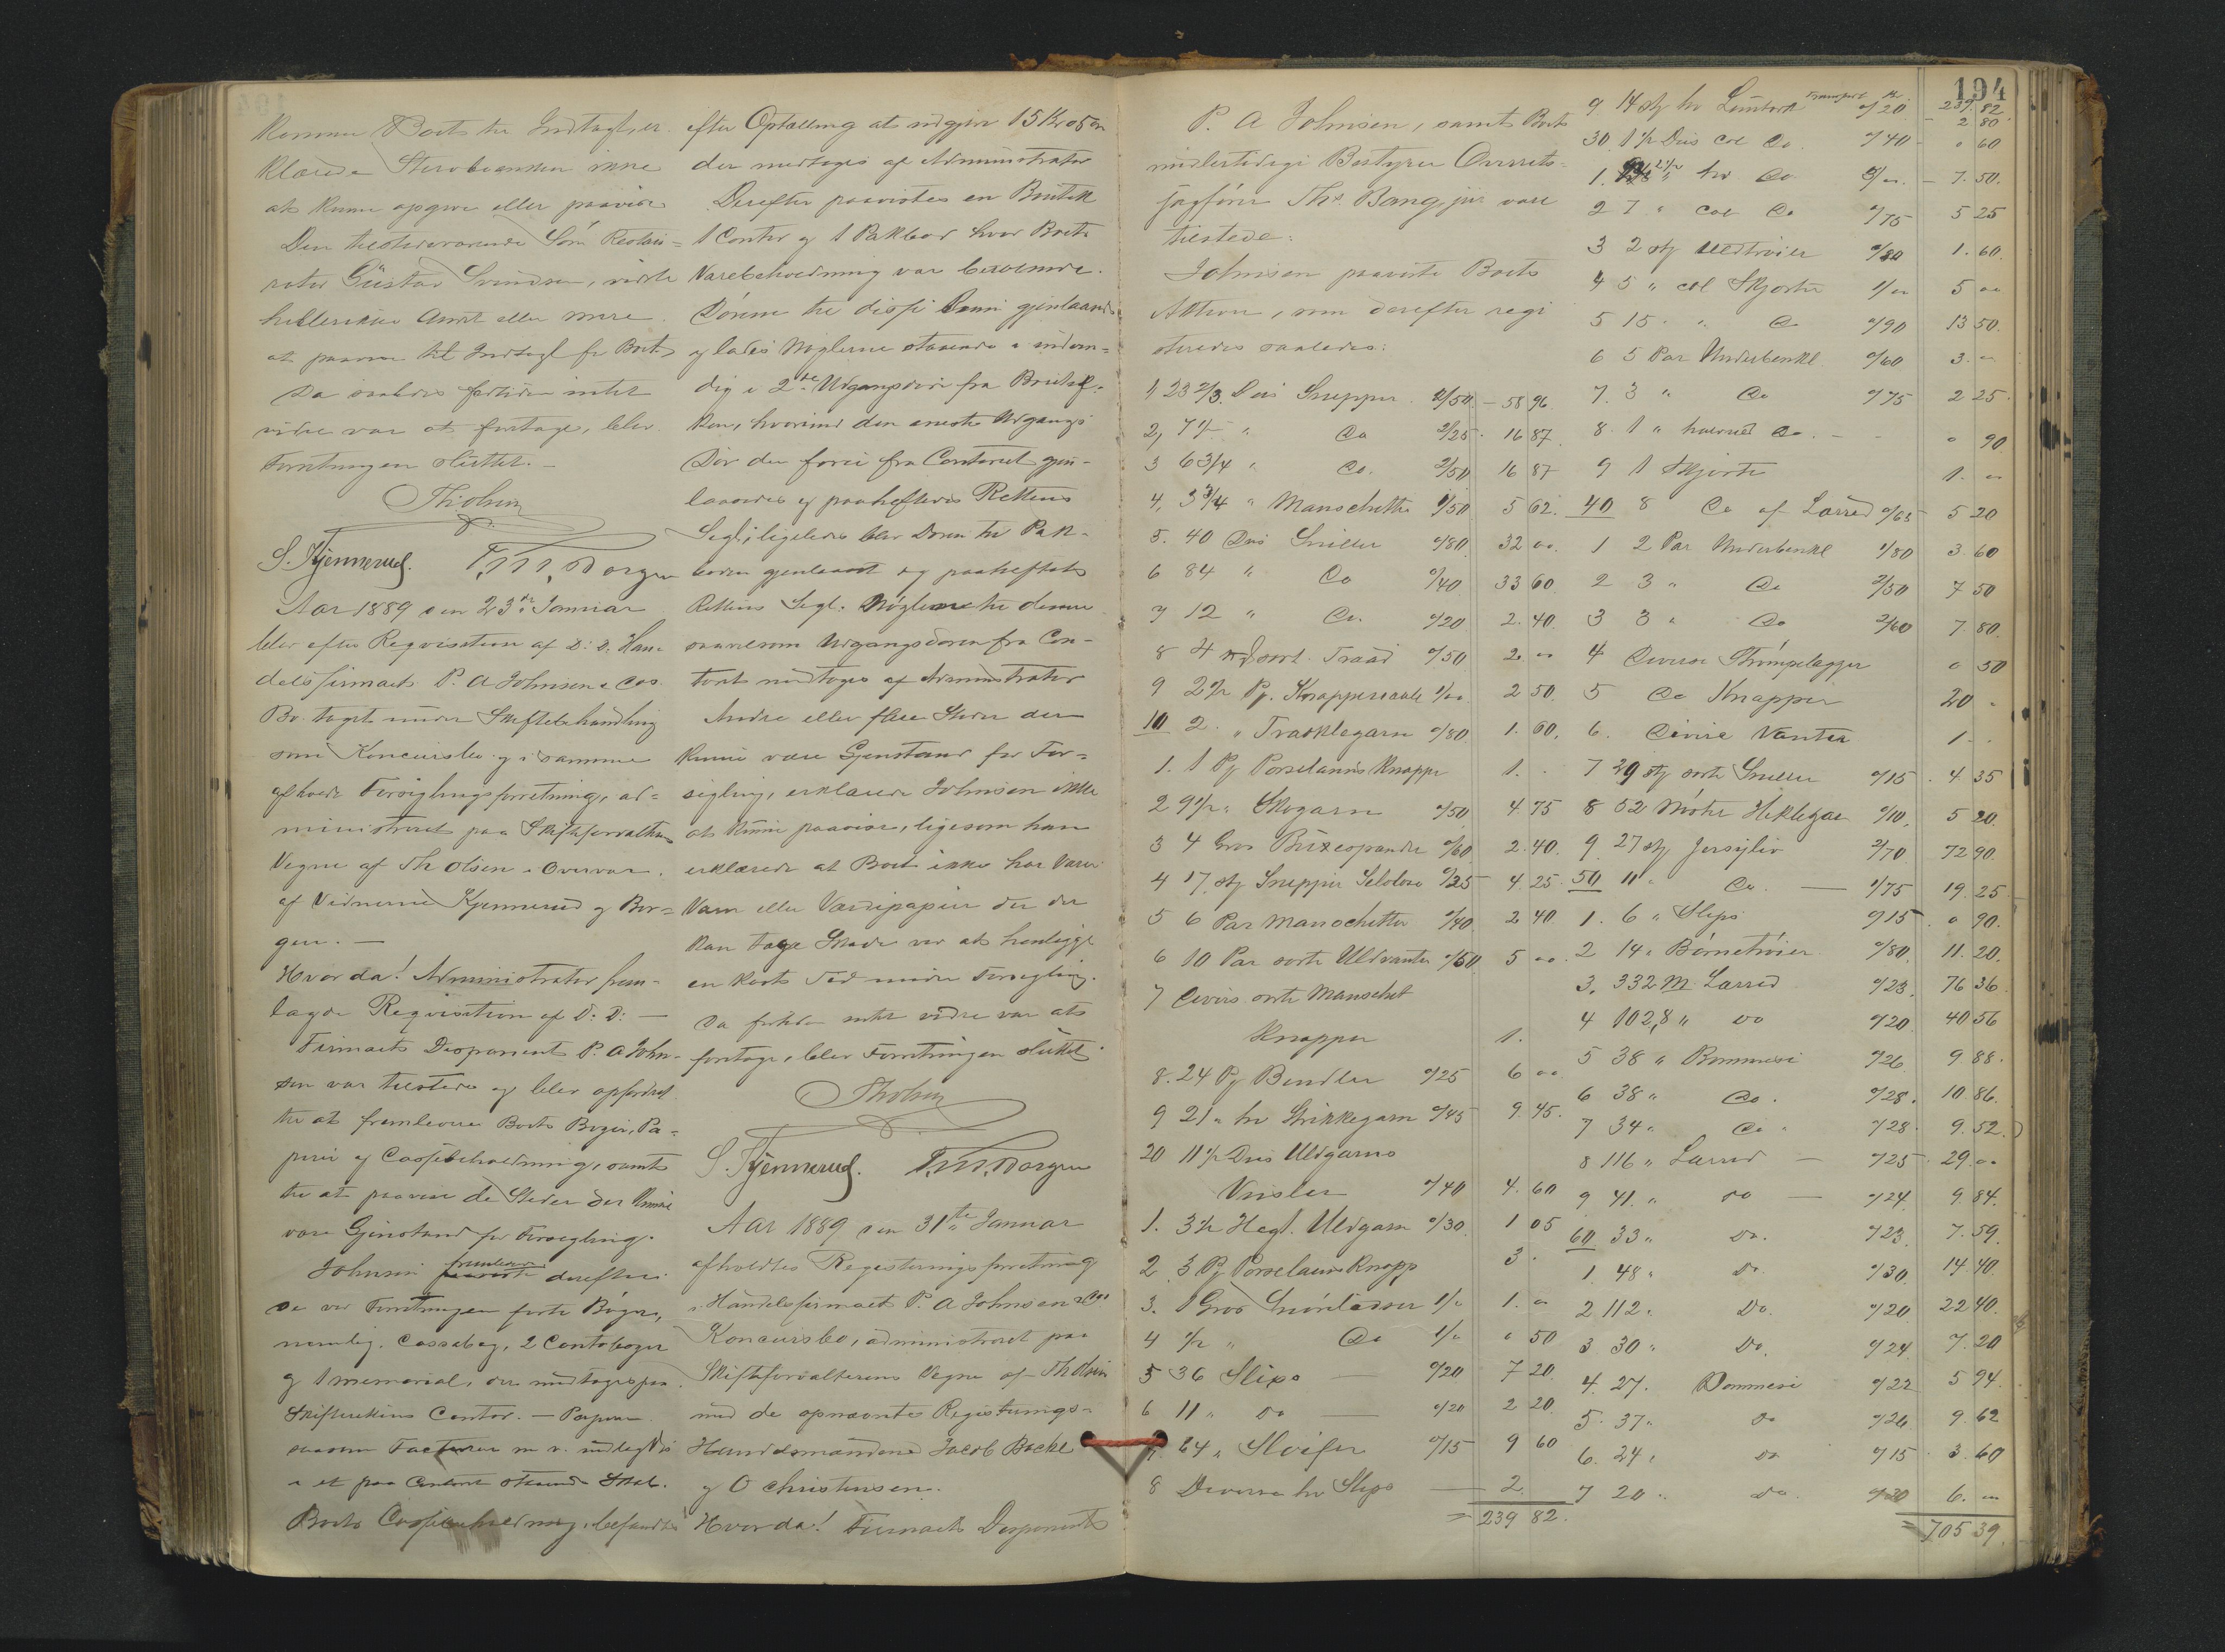 194
komme Boet til Indtægt, er
klærede Stervboenken ikke
at kunne opgive eller paavise
Den tilstedeværende Søn
Gustav Svendsen, vidste
hellerikke Andet eller mere
at paavise til Indtægt for Boet
Da saaledes fortiden intet
videre var at foretage, blev
Forretningen sluttet. —
Th. Olsen
S. Kjennerud. T. M. Borgen
Aar 1889 den 23de Januar
blev efter Reqvisition af D: D. Han-
delsfirmaet P. A Johnsen & Cos
Bo taget under Skiftebehandling
som Koncursbo og i samme
afholdt Forseglingsforretning, ad-
ministreret paa Skifteforvalterens
Vegne af Th Olsen i Overvær
af Vidnerne Kjennerud og Bor-
gen. —
Hvor da! Administrator frem-
lagde Reqvisition af D: D: —
Firmaets Disponent P. A John-
sen var tilstede og blev opfordret
til at fremlevere Boets Bøger, Pa-
pirer og Cassebeholdning, samt
til at paavise de Steder der kunne
være Gjenstand for Forsegling.
Johnsen fremleverede derefter
de ved Forretningen førte Bøger,
nemlig. Cassabog, 2 Contobøger
og 1 memorial, der medtoges paa
Skifterettens Contor. — Papirer
saasom Facturer m v. nedlagdes
i et paa Contoret staaende Skab.
Boets Cassebeholdning, befandtes
efter Optælling at udgjøre 15 Kr 05 Øre
der medtoges af Administrator
Derefter paavistes en Boutik
1 Contor og 1 Pakbod hvor Boets
Varebeholdning var beroende.
Dørene til disse bleve gjenlaasede
og lodes Nøglerne staaende i indven-
dig i 2de Udgangsdøre fra Boutik-
ken, hvorimod den eneste Udgangs
Dør der førte fra Contoret gjen-
laasedes og paaheftedes Rettens
Segl; ligeledes blev Døren til Pak-
boden gjenlaaset og paaheftet
Rettens Segl. Nøglerne til denne
saavelsom Udgangsdøren fra Con-
toret medtoges af Administrator
Andre eller flere Steder der
kunne være Gjenstand for For-
segling, erklærede Johnsen ikke
at kunne paavise, ligesom han
erklærede at Boet ikke har Varer
eller Værdipapirer der
kan tage Skade ved at henligge
en kort Tid under Forsegling.
Da fortiden intet videre var at
foretage, blev Forretningen sluttet
Th Olsen
S. Kjennerud. T. M. Borgen
Aar 1889 den 31te Januar
afholdtes Registreringsforretning
i Handelsfirmaet P. A Johnsen & Cos
Koncursbo, administreret paa
Skifteforvalterens Vegne af Th Olsen
med de opnævnte Registrerings-
Handelsmændene Jacob Bache
og O Christensen.
Hvor da! Firmaets Disponent
P. A Johnsen, samt Boets
midlertidige Bestyrer Overrets-
sagfører Ths. Bang jur vare
tilstede:
Johnsen paaviste Boets
Aktiver, som derefter regi
streredes saaledes:
1, 23 2/3. Dus Snipper. 2/50. - 58 96
2, 7 1/2 " Do 2/25. 16 87.
3 6 3/4 " Do. 2/50 16 87
4, 3 3/4 " Manschetter 1/50 5 62.
5. 40 Dus Sneller 0/80. 32 00.
6 84 " Do 0/40. 33 60
7 12 " Do. 0/20 2. 40.
8 4 sort. Traad 0/50 2. 00
9 2 1/2 Pk. 1/00. 2 50.
10 2. " Traaklegarn 0/80 1. 60.
1. 1 Pk Porselæns Knapper 1. -
2 9 1/2 " Skogarn 0/50 4. 75
3 4 Gros Buxespænder 0/60 2. 40.
4 17. stk Snipper 0/25 4. 25.
5 6 Par Manschetter 0/40 2 40.
6 10 Par sorte Uldvanter 0/50 5 00.
7 Divers sorte Manschet
Knapper 1.
8. 24 Pk Bendler 0/25 6 00
9 21 " hv Strikkegarn 0/45 9. 45.
20 11 1/2 Dus Uldgarns
Nøsler 0/40 4. 60
1. 3 1/2 Hegt. Uldgarn 0/30 1 05
2 3 Pk Porselæns Knapp 3.
3. 1 Gros Snørlidser 1/00 1. 00
4 1/2 " Do 1/00 0 50
5 36 Slips — 0/20 7 20.
6 11 " Do — 0/20 2 20
7. 64 " Sløifer 0/15 9 60
8 Diverse hv Slips — 2.
= 239 82.
Transport Kr. 239. 82
9 14 stk hv 0/20 - 2 80
30 1 1/2 Dus col Do. 0/40 - 0 60
1. 2 1/2 " hv Do 3/00. - 7. 50.
2 7 " col Do 0/75 5 25
3 2 stk Uldtrøier 0/80 1. 60.
4 5 " col Skjorter 1/00 5 00
5 15. " Do 0/90 13 50.
6 5 Par Underbenkl 0/60 3. 00
7. 3 " Do 0/75 2 25.
8 1 " Do. - 0 90
9 1 Skjorte 1. 00
40 8 Do af Lærred 0/65 5 20
1 2 Par Underbenkl 1/80 3. 60
2 3 " Do 2/50 7 50
3 3 " Do 2/60 7. 80.
4 Diverse Strømpelægger 0 50
5 Do Knapper 20 -
6. Divire Vanter 1 -
7 29 stk sorte Sneller 0/15 . 4 35
8 52 Nøster Heklegar 0/10, 5 20.
9. 27 stk Jersyliv 2/70 72 90.
50 11 " Do. — 1/75 19. 25.
1. 6 " Slips 0/15 . 0 90.
2 14 " Børnetrøier 0/80. 11. 20.
3. 332 M Lærred 0/23. 76 36
4 102,8 " Do 0/20 40 56
5 38 " Bommesi 0/26. 9 88.
6 38 " Do. 0/28. 10. 86.
7 34 " Do. 0/28 9. 52.
8 116 " Lærred — 0/25 29. 00
9 41. " Do — 0/24 9. 84.
60 33 " Do. 0/23. 7. 59.
1 48 " Do. 0/30. 14. 40.
2 112 " Do. 0/20 22 40.
3 30 " Do. 0/24 7. 20
4. 27. Bommesi 0/22 5 94
5. 37 " Do 0/26 9. 62
6. 24 " Do 0/15 . 3. 60
7 20 " Do. 0/30 6. 00
= 705 39.